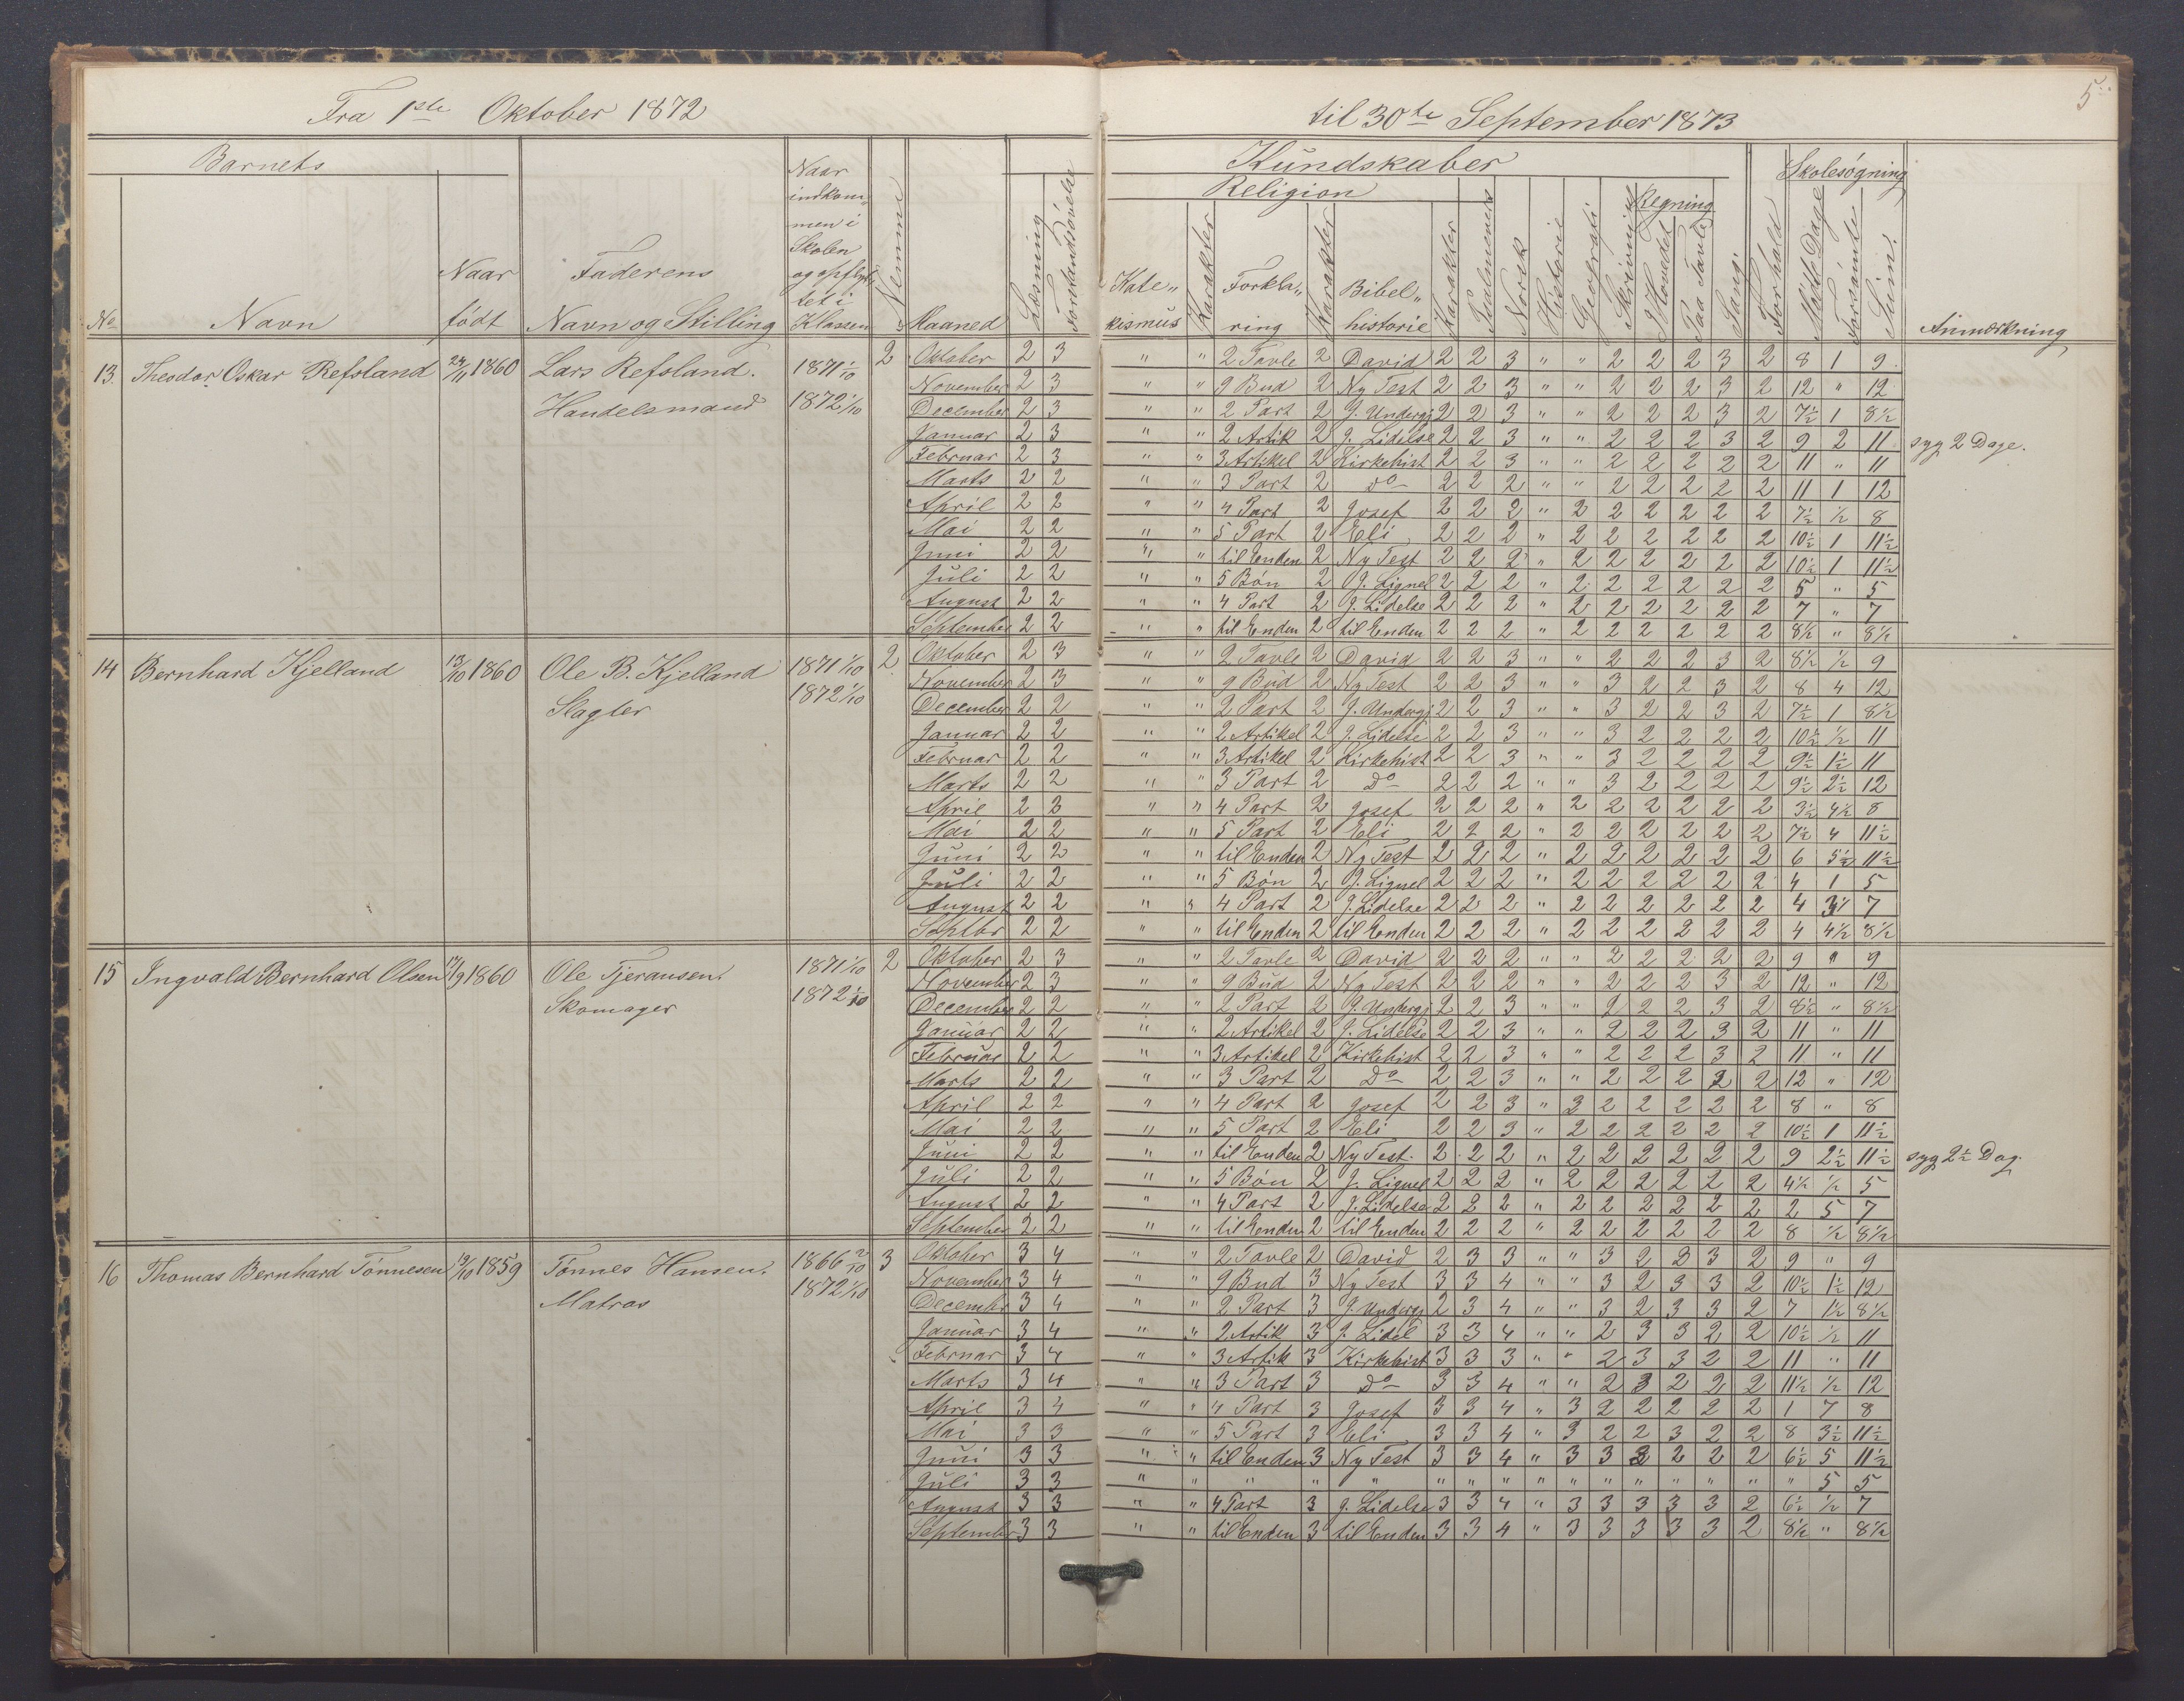 5
Fra 1ste Oktober 1872 til 30te September 1873
Barnets
No Navn Naar født
Faderens Navn og Stilling
Naar indkommen i Skolen og opflyttet i Klassen
Nemme
Maaned
Læsning
Forstandsøvelse
Kundskaber
Religion
Katekismus Karakter Forklaring Karakter Bibelhistorie Karakter
Psalmevers Norsk Historie Geografi Skrivning
Regning
I Hovedet Paa Tavle
Sang.
Forhold
Skolesøgning
Mødte Dage Forsømte Sum.
Anmærkning
13. Theodor Oskar Refsland 24/11 1860 Lars Refsland. Handelsmand 1871 1/10 1872 1/10 2
Oktober 2 3 " " 2 Tavle 2 David 2 2 3 " " 2 2 2 3 2 8 1 9
November 2 3 " " 9 Bud 2 Ny Test 2 2 3 " " 2 2 2 3 2 12 " 12
December 2 3 " " 2 Part 2 J. Undergj 2 2 3 " " 2 2 2 3 2 7½ 1 8½
Januar 2 3 " " 2 Artik 2 J. Lidelse 2 2 3 " " 2 2 2 3 2 9 2 11 syg 2 Dage.
Februar 2 3 " " 3 Artikel 2 Kirkehist 2 2 3 " " 2 2 2 2 2 11 " 11
Marts 2 2 " " 3 Part 2 Do 2 2 2 " " 2 2 2 2 2 11 1 12
April 2 2 " " 4 Part 2 Josef 2 2 2 " 2 2 2 2 2 2 7½ ½ 8
Mai 2 2 " " 5 Part 2 Eli 2 2 2 " 2 2 2 2 2 2 10½ 1 11½
Juni 2 2 " " til Enden 2 Ny Test 2 2 2 " 2 2 2 2 2 2 10½ 1 11½
Juli 2 2 " " 5 Bøn 2 J. Lignel 2 2 2 " 2 2 2 2 2 2 5 " 5
August 2 2 " " 4 Part 2 J. Lidelse 2 2 2 " 2 2 2 2 2 2 7 " 7
September 2 2 " " til Enden 2 til Enden 2 2 2 " 2 2 2 2 2 2 8½ " 8½
14 Bernhard Kjelland 13/10 1860 Ole B. Kjelland Slagter 1871 1/10 1872 1/10 2
Oktober 2 3 " " 2 Tavle 2 David 2 2 3 " " 2 2 2 3 2 8½ ½ 9
November 2 3 " " 9 Bud 2 Ny Test 2 2 3 " " 3 2 2 3 2 8 4 12
December 2 2 " " 2 Part 2 J. Undergj 2 2 3 " " 3 2 2 3 2 7½ 1 8½
Januar 2 2 " " 2 Artikel 2 J. Lidelse 2 2 3 " " 3 2 2 2 2 10½ ½ 11
Februar 2 2 " " 3 Artikel 2 Kirkehist 2 2 3 " " 3 2 2 2 2 9½ 1½ 11
Marts 2 2 " " 3 Part 2 Do 2 2 2 " " 3 2 2 2 2 9½ 2½ 12
April 2 2 " " 4 Part 2 Josef 2 2 2 " 2 2 2 2 2 2 3½ 4½ 8
Mai 2 2 " " 5 Part 2 Eli 2 2 2 " 2 2 2 2 2 2 7½ 4 11½
Juni 2 2 " " til Enden 2 Ny Test 2 2 2 " 2 2 2 2 2 2 6 5½ 11½
Juli 2 2 " " 5 Bøn 2 J. Lignel 2 2 2 " 2 2 2 2 2 2 4 1 5
August 2 2 " " 4 Part 2 J. Lidelse 2 2 2 " 2 2 2 2 2 2 4 7
Septbr 2 2 " " til Enden 2 til Enden 2 2 2 " 2 2 2 2 2 2 4 4½ 8½
15 Ingvald Bernhard Olsen 17/9 1860 Ole Tjeransen. Skomager 1871 1/10 1872 1/10 2
Oktober 2 3 " " 2 Tavle 2 David 2 2 2 " " 2 2 2 2 2 9 " 9
November 2 3 " " 9 Bud 2 Ny Test 2 2 2 " " 2 2 2 3 2 12 " 12
December 2 2 " " 2 Part 2 J. Undergj 2 2 3 " " 2 2 2 3 2 8½ " 8½
Januar 2 2 " " 2 Artikel 2 J. Lidelse 2 2 3 " " 2 2 2 3 2 11 " 11
Februar 2 2 " " 3 Artikel 2 Kirkehist 2 2 3 " " 2 2 2 3 2 11 " 11
Marts 2 2 " " 3 Part 2 Do 2 2 3 " " 2 2 2 2 2 12 " 12
April 2 2 " " 4 Part 2 Josef 2 2 3 " 3 2 2 2 2 2 8 " 8
Mai 2 2 " " 5 Part 2 Eli 2 2 3 " 2 2 2 2 2 2 10½ 1 11½
Juni 2 2 " " til Enden 2 Ny Test. 2 2 2 " 2 2 2 2 2 2 9 2½ 11½ syg 2½ Dag.
Juli 2 2 " " 5 Bøn 2 J. Lignel 2 2 2 " 2 2 2 2 2 2 4½ ½ 5
August 2 2 " " 4 Part 2 J. Lidelse 2 2 2 " 2 2 2 2 2 2 2 5 7
September 2 2 " " til Enden 2 til Enden 2 2 2 " 2 2 2 2 2 2 8 ½ 8½
16 Thomas Bernhard Tønnesen 19/10 1859 Tønnes Hansen. Matros 1866 2/10 1872 1/10 3
Oktober 3 4 " " 2 Tavle 2 David 2 3 3 " " 3 2 3 3 2 9 " 9
November 3 4 " " 9 Bud 3 Ny Test 3 3 4 " " 3 2 3 3 2 10½ 1½ 12
December 3 4 " " 2 Part 3 J. Undergj 2 3 4 " " 3 2 3 3 2 7 1½ 8½
Januar 3 4 " " 2 Artik 3 J. Lidel 3 3 4 " " 2 3 3 2 2 10½ ½ 11
Februar 3 4 " " 3 Artik 3 Kirkehist 3 3 3 " " 2 3 3 2 2 11 " 11
Marts 3 4 " " 3 Part 3 Do 3 3 4 " " 2 3 2 2 2 11½ ½ 12
April 3 4 " " 4 Part 3 Josef 3 3 4 " 3 2 2 2 2 2 1 7 8
Mai 3 3 " " 5 Part 3 Eli 3 3 4 " 3 2 2 3 2 2 8 3½ 11½
Juni 3 3 " " til Enden 3 Ny Test 3 3 4 " 3 3 3 2 2 2 6½ 5 11½
Juli 3 3 " " " " " " " " " " " " " " " " 5 5
August 3 3 " " 4 Part 3 J. Lidelse 3 3 4 " 3 3 3 3 3 2 6½ ½ 7
September 3 3 " " til Enden 3 til Enden 3 3 4 " 3 3 3 3 3 2 8½ " 8½